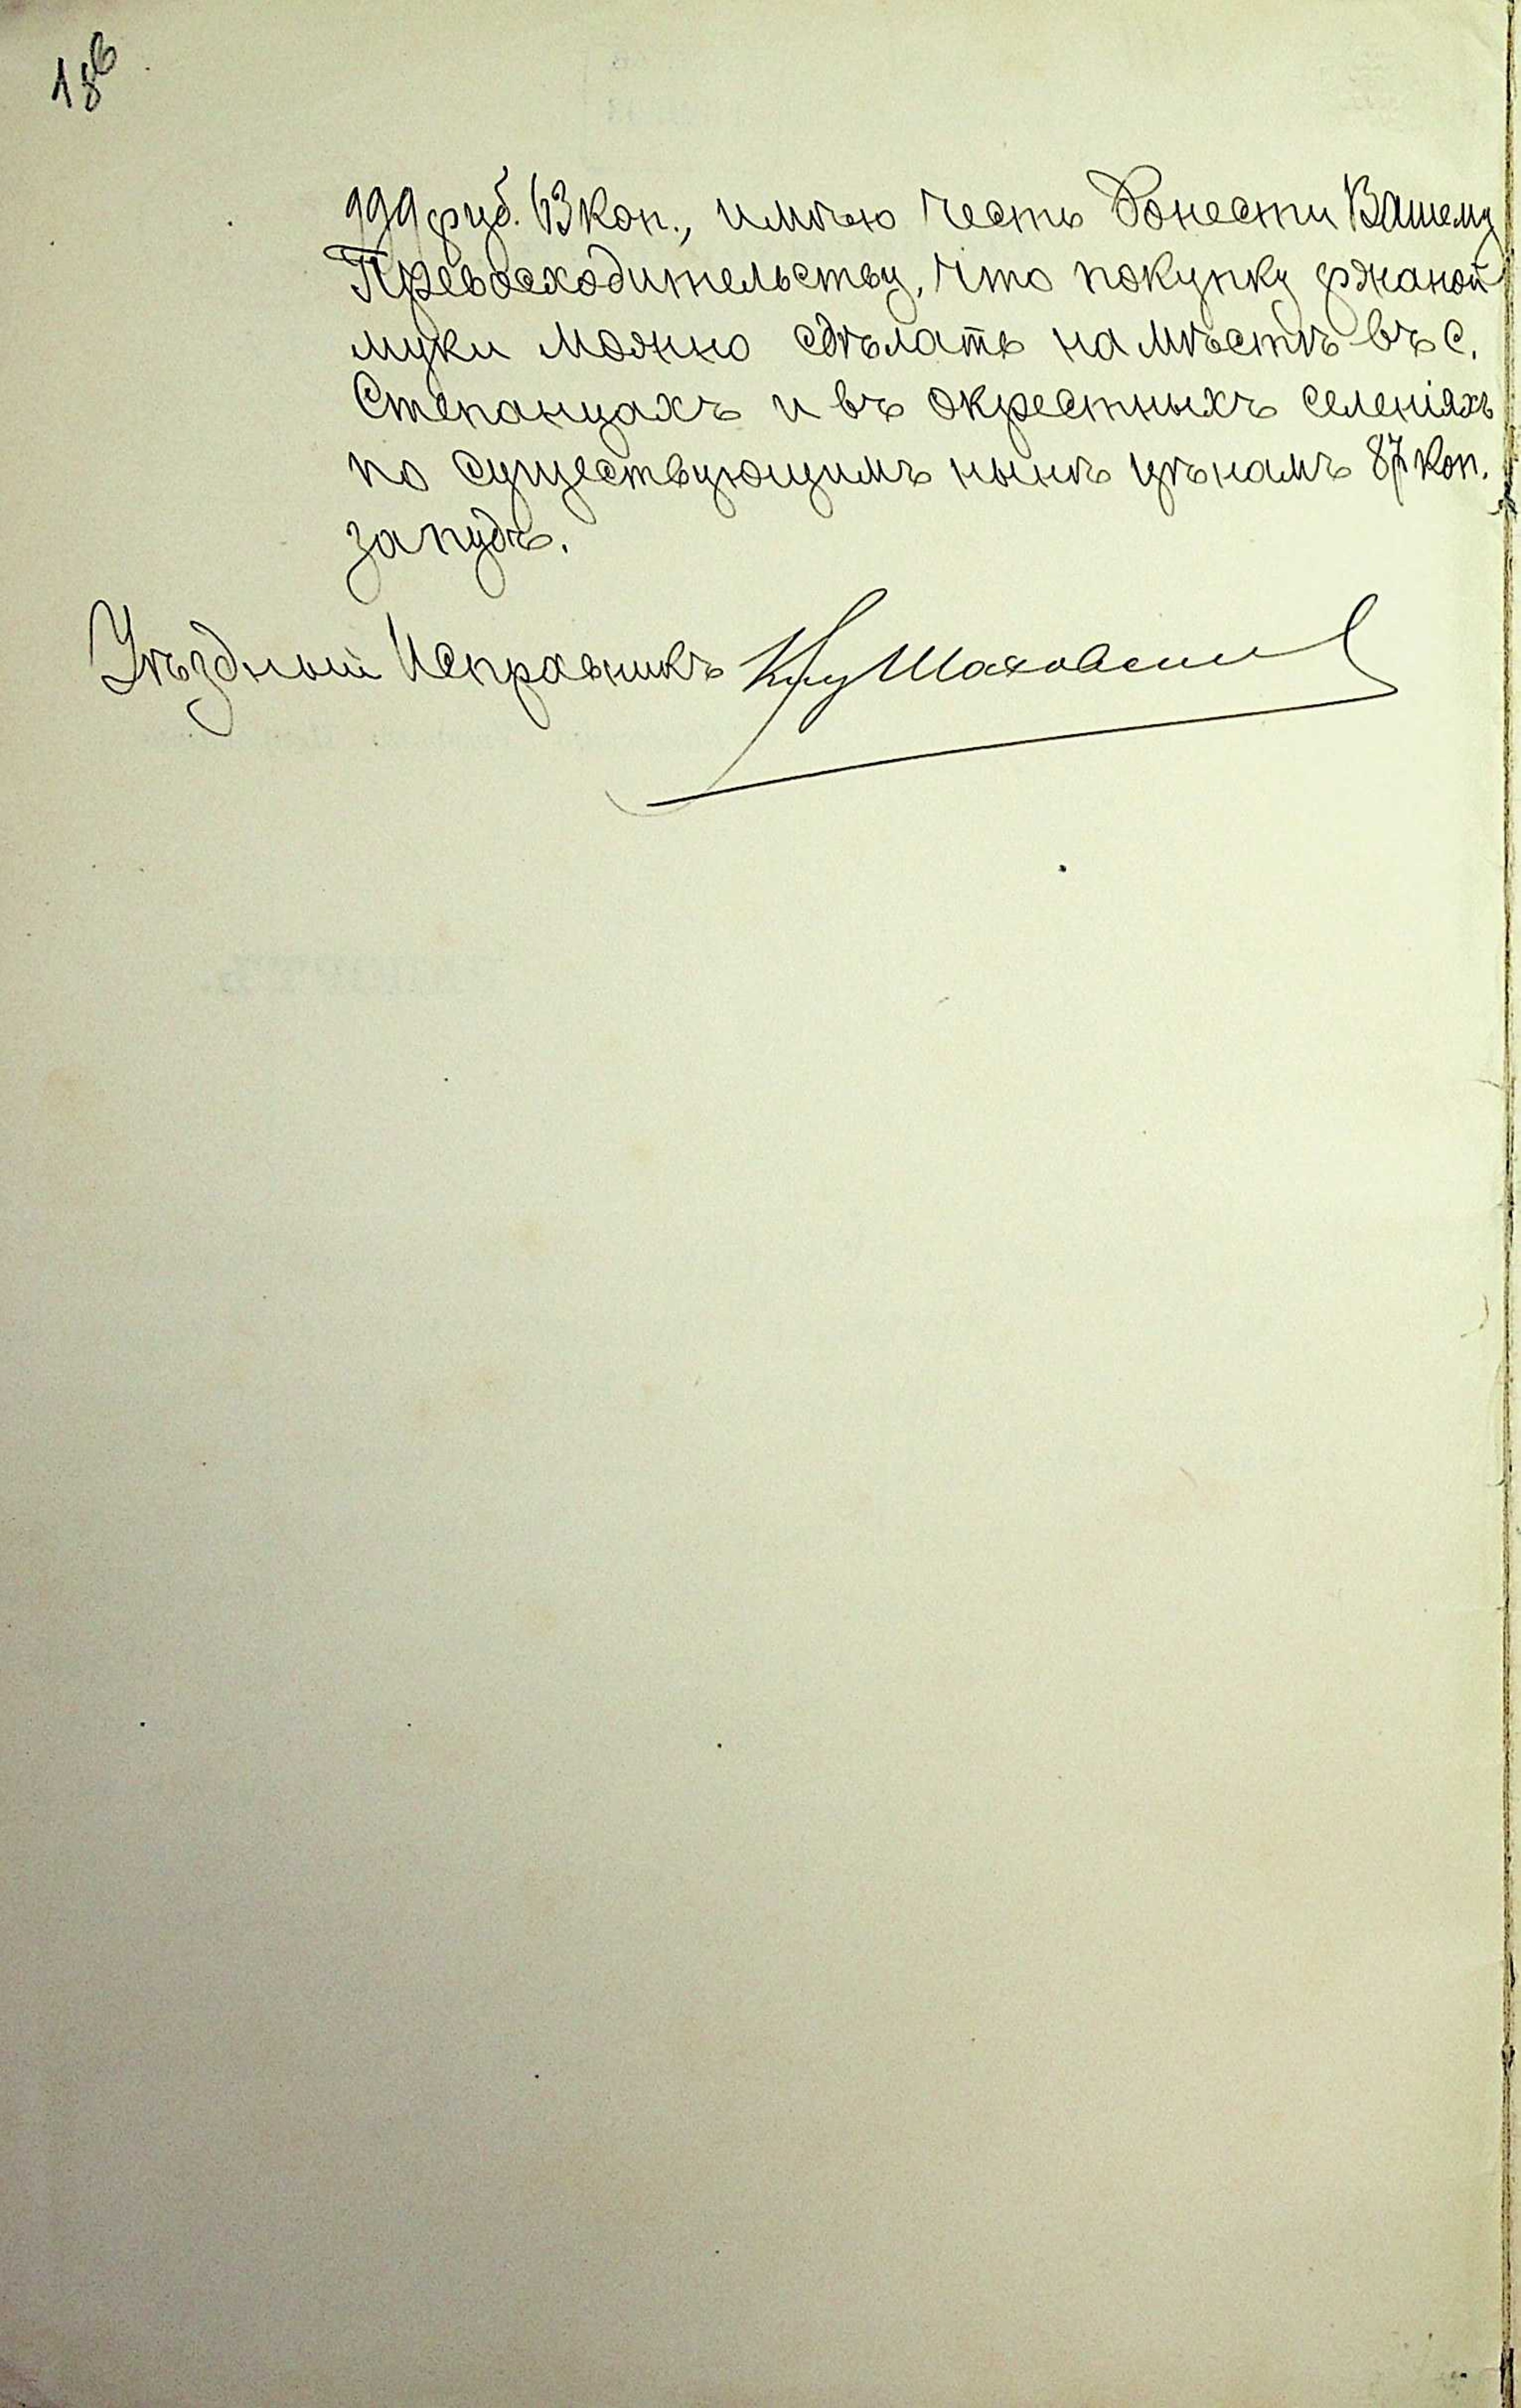 18в
999 руб. 63 коп., имѣю честь донести Вашему
Превосходительству, что покупку ржаной
муки можно сдѣлать на мѣстѣ въ с.
Степанцахъ и въ окрестныхъ селеніяхъ
по существующимъ нынѣ цѣнамъ 87 коп.
за пудъ.
Уѣздный Исправникъ Шаховской